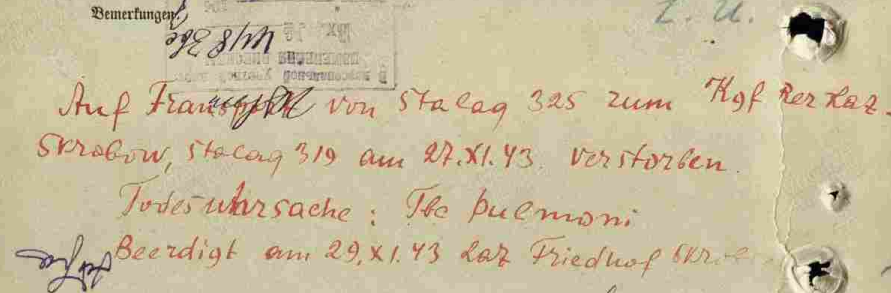 Bemerkungen:
Z. U.
Auf Transport von Stalag 325 zum Kgf Res Laz.
Skrobow, Stalag 319 am 27.XI.43. verstorben
Todesuhrsache: Tbc pulmoni
Beerdigt am 29.XI.43 Laz Friedhof